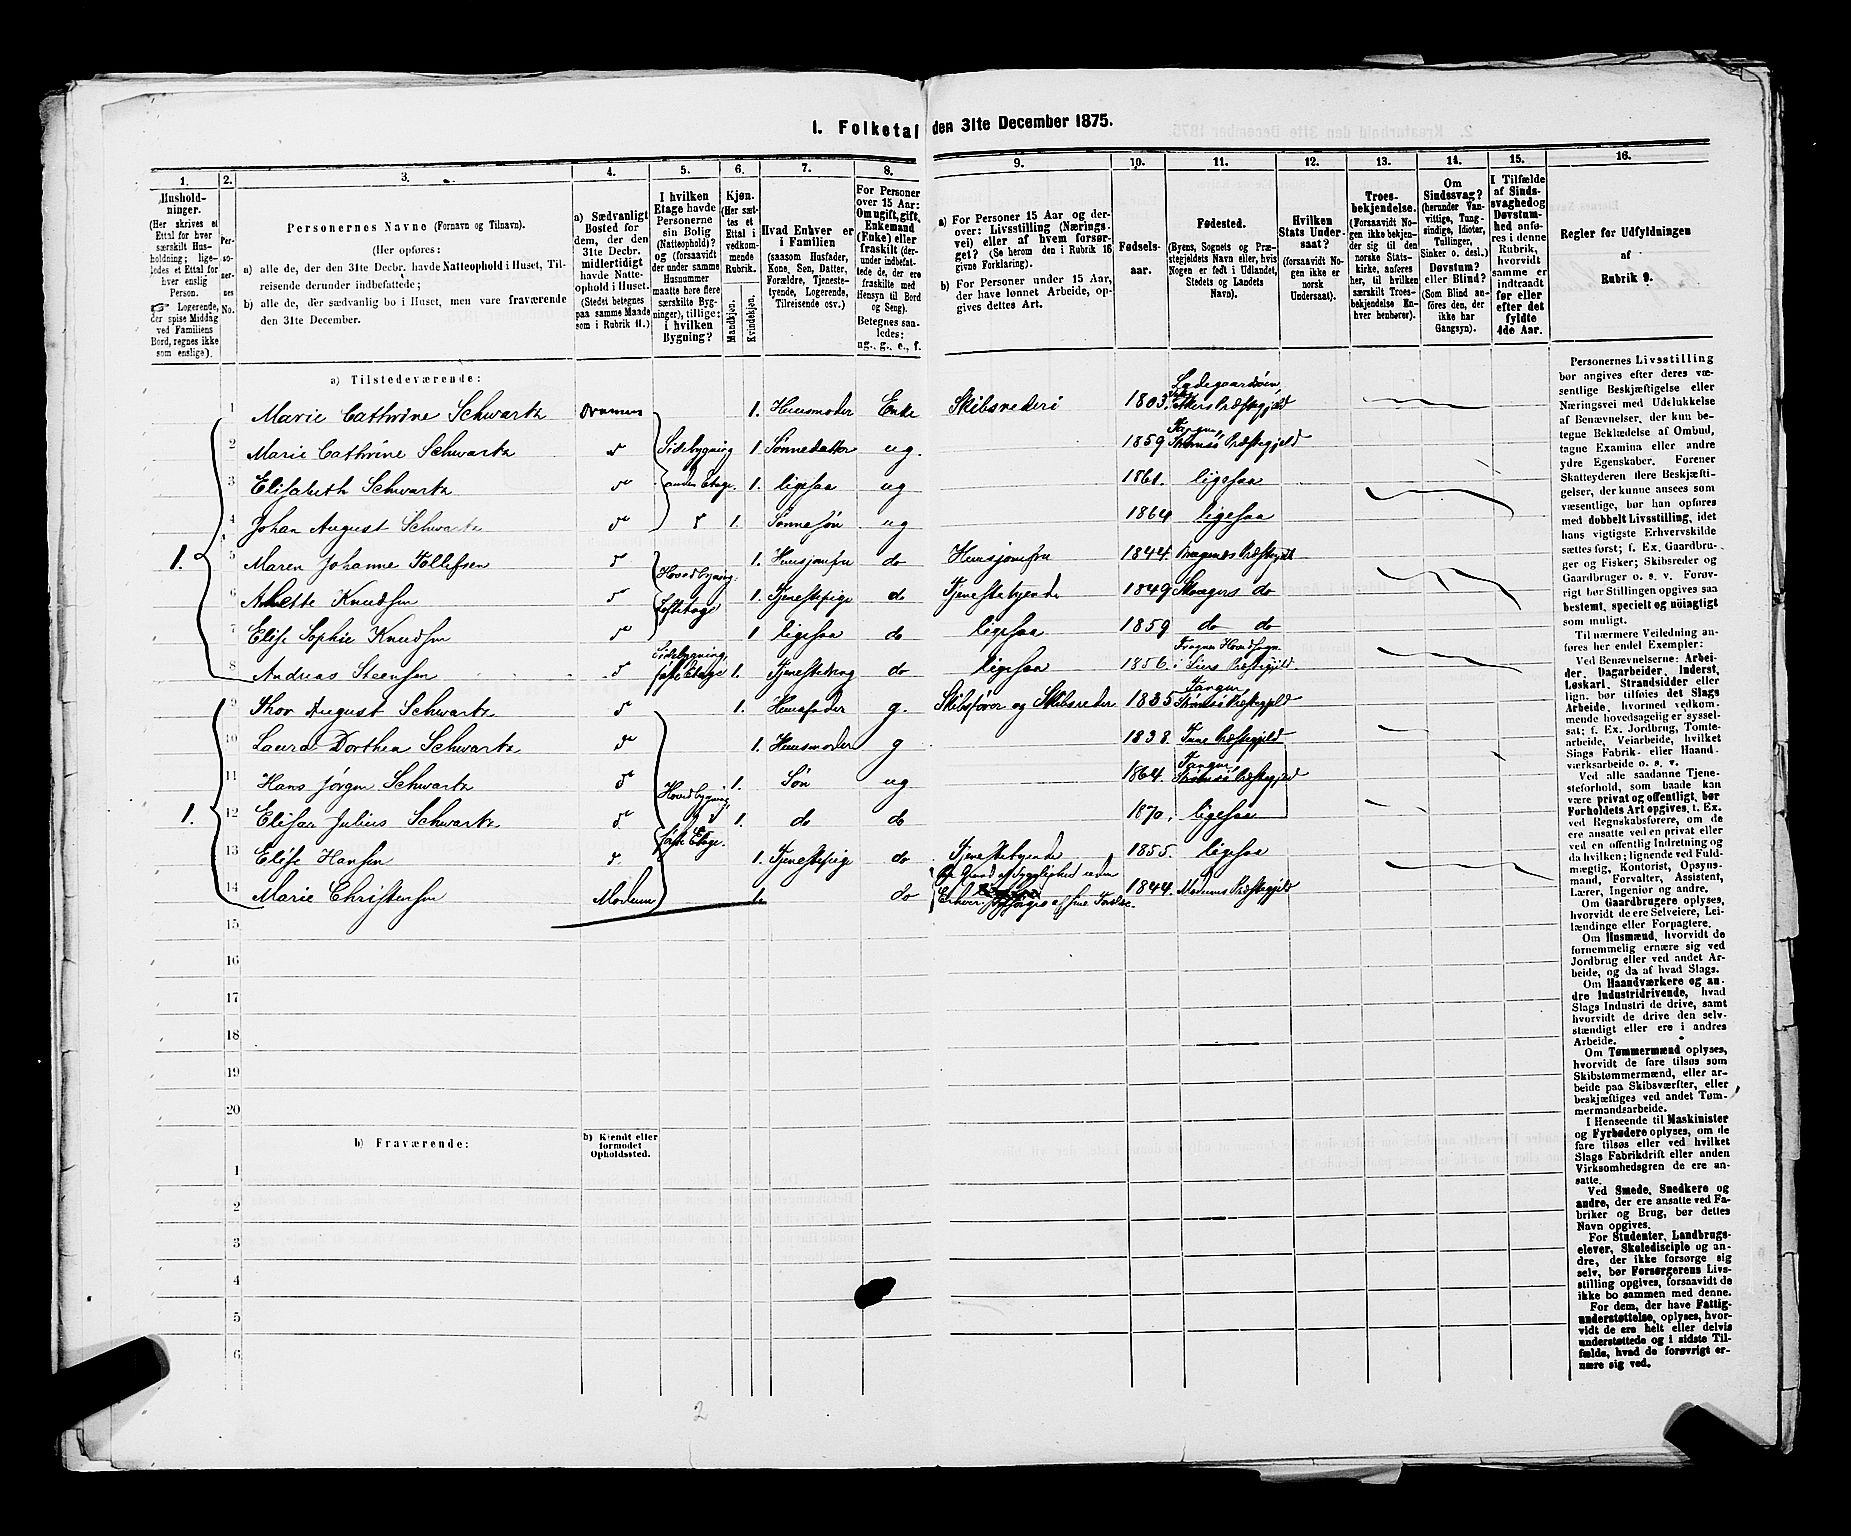 1. Folketal den 31te December 1875.
1. 2. 3. 4. 5. 6. 7. 8. 9. 10. 11. 12. 13. 14. 15. 16.
Husholdninger.
(Her skrives et Ettal for hver særskilt Husholdning; ligeledes et Ettal for hver enslig Person.
☞ Logerende, der spise Middag ved Familiens Bord, regnes ikke som enslige).
Personernes No.
Personernes Navne (Fornavn og Tilnavn).
(Her opføres:
a) alle de, der den 31te Decbr. havde Natteophold i Huset, Tilreisende derunder indbefattede;
b) alle de, der sædvanlig bo i Huset, men vare fraværende den 31te December.
a) Sædvanligt Bosted for dem, der den 31te Decbr. midlertidigt havde Natteophold i Huset. (Stedet betegnes paa samme Maade som i Rubrik 11.)
I hvilken Etage havde Personerne sin Bolig (Natteophold)? og (forsaavidt der under samme Husnummer maatte høre flere særskilte Bygninger), tillige: i hvilken Bygning?
Kjøn. (Her sættes et Ettal i vedkommende Rubrik.
Mandkjøn. Kvindekjøn.
Hvad Enhver er i Familien
(saasom Husfader, Kone, Søn, Datter, Forældre, Tjenestetyende, Logerende, Tilreisende osv.)
For Personer over 15 Aar: Om ugift, gift, Enkemand (Enke) eller fraskilt (derunder indbefattede de, der ere fraskilte med Hensyn til Bord og Seng).
Betegnes saaledes: ug., g., e., f.
a) For Personer 15 Aar og derover: Livsstilling (Næringsvei) eller af hvem forsørget? (Se herom den i Rubrik 16 givne Forklaring).
b) For Personer under 15 Aar, der have lønnet Arbeide, opgives dettes Art.
Fødselsaar.
Fødested.
(Byens, Sognets og Præstegjeldets Navn eller, hvis Nogen er født i Udlandet, Stedets og Landets Navn).
Hvilken Stats Undersaat?
(forsaavidt Nogen ikke er norsk Undersaat).
Troesbekjendelse.
(Forsaavidt Nogen ikke bekjender sig til den norske Statskirke, anføres her, til hvilken særskilt Troesbekjendelse Enhver henhører).
Om Sindssvag? (herunder Vanvittige, Tungsindige, Idioter, Tullinger, Sinker o. desl.) Døvstum? eller Blind? (Som Blind anføres den, der ikke har Gangsyn).
I Tilfælde af Sindssvaghed og Døvstumhed anføres i denne Rubrik, hvorvidt samme er indtraadt før eller efter det fyldte 4de Aar.
Regler for Udfyldningen af Rubrik 9.
a) Tilstedeværende:
1 Marie Cathrine Schwartz Drammen 1. Huusmoder Enke Skibsrederi 1803. Ladegaardsøen, Akers Præstegjeld
2 Marie Cathrine Schwartz do Sidebygning 1. Sønnedatter ug. 1859 Tangen, Strømsø Præstegjeld
3 Elisabeth Schwartz do anden Etage. 1. ligesaa ug 1861. ligesaa
4 Johan August Schwartz do 1. Sønnesøn ug 1864 ligesaa
1. 5 Maren Johanne Tollefsen do Hovedbygning 1. Huusjomfru do Huusjomfru 1844. Bragernes Præstegjeld
6 Anette Knudsen do Loftetage 1. Tjenestepige do Tjenestetyende 1849 Skougers do
7 Elise Sophie Knudsen do 1 ligesaa do ligesaa 1859 do do
8 Andreas Steensen do Sidebygning, første Etage 1. Tjenestedreng do ligesaa 1856 Frogner Hovedsogn i Liers Præstegjeld
9 Thor August Schwartz do 1. Huusfader g. Skibsfører og Skibsreder 1835 Tangen, Strømsø Præstegjeld
10 Laura Dorthea Schwartz do 1. Huusmoder g 1838. Tune Præstegjeld
11 Hans Jørgen Schwartz do 1. Søn ug 1864. Tangen, Strømsø Præstegjeld
1. 12 Elisar Julius Schwartz do Hovedbygning, første Etage. 1. do do 1870. ligesaa
13 Elise Hansen do 1. Tjenestepige do Tjenestetyende 1855. ligesaa
14 Marie Christensen Modum 1. do Paa Grund af Sygelighed uden Erhverv, forsørges af sine Forældre. 1844. Modums Præstegjeld
15
16
17
18
19
20
b) Fraværende:
b) Kjendt eller formodet Opholdssted.
1
2
3
4
5
6
2
Personernes Livsstilling
bør angives efter deres væ-
sentlige Beskjæftigelse eller
Næringsvei med Udelukkelse
af Benævnelser, der kun be-
tegne Beklædelse af Ombud,
tagne Examina eller andre
ydre Egenskaber. Forener
Skatteyderen flere Beskjæfti-
gelser, der kunne ansees som
væsentlige, bør han opføres
med dobbelt Livsstilling, idet
hans vigtigste Erhvervskilde
sættes først; f. Ex. Gaardbru-
ger og Fisker; Skibsreder og
Gaardbruger o. s. v. Forøv-
rigt bør Stillingen opgives saa
bestemt, specielt og nöiagtigt
som muligt.
Til nærmere Veiledning an-
føres her endel Exempler:
Ved Benævnelserne: Arbei-
der, Dagarbeider, Inderst,
Løskarl, Strandsidder eller
lign. bør tilføies det Slags
Arbeide, hvormed vedkom-
mende hovedsagelig er syssel-
sat; f. Ex. Jordbrug, Tomte-
arbeide, Veiarbeide, hvilket
Slags Fabrik- eller Haand-
værksarbeide o. s. v.
Ved alle saadanne Tjene-
steforhold, som baade kan
være privat og offentligt, bør
Forholdets Art opgives, t. Ex.
ved Regnskabsførere, om de
ere ansatte ved en privat eller
ved en offentlig Indretning og
da hvilken; lignende ved Fuld-
mægtig, Kontorist, Opsyns-
mand, Forvalter, Assistent,
Lærer, Ingeniør og andre.
Om Gaardbrugere oplyses,
hvorvidt de ere Selveiere, Lei-
lændinge eller Forpagtere.
Om Husmænd, hvorvidt de
fornemmelig ernære sig ved
Jordbrug eller ved andet Ar-
beide, og da af hvad Slags.
Om Haandværkere og an-
dre Industridrivende, hvad
Slags Industri de drive, samt
hvorvidt de drive den selv-
stændigt eller ere i andres
Arbeide.
Om Tømmermænd oplyses,
hvorvidt de fare tilsøs som
Skibstømmermænd, eller ar-
beide paa Skibsværfter, eller
beskjæftiges ved andet Tøm-
mermandsarbeide.
I Henseende til Maskinister
og Fyrbødere oplyses, om de
fare tilsøs eller ved hvilket
Slags Fabrikdrift eller anden
Virksomhedsgren de ere an-
satte.
Ved Smede, Snedkere og
andre, der ere ansatte ved Fa-
briker og Brug, bør dettes
Navn opgives.
For Studenter, Landbrugs-
elever, Skoledisciple og an-
dre, der ikke forsørge sig
selv, bør Forsørgerens Livs-
stilling opgives, forsaavidt de
ikke bo sammen med denne.
For dem, der have Fattig-
understøttelse, oplyses, hvor-
vidt de ere helt eller delvis
understøttede og i sidste Til-
fælde, hvad de forøvrigt er-
nære sig ved.